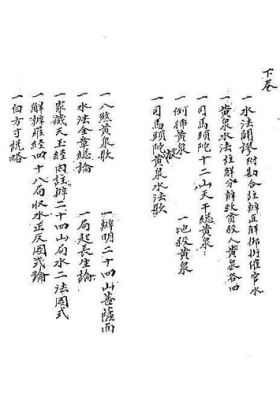 下卷
一水法闢謬附勘合註辯正解御街催官水
一黃泉水法註解分辨救貧殺人黃泉各四
一司馬頭陀十二山天干總黃泉
一例黃泉 一地殺黃泉
一司馬頭陀黃泉水法歌
一八煞黃泉歌 一辯明二十四山菩薩面
一水法金章總論 一局起長生論
一家藏天玉經內註辦二十四山局水二法圖式
一解辦經四十八局收水正反圖式論
一白方寸說略